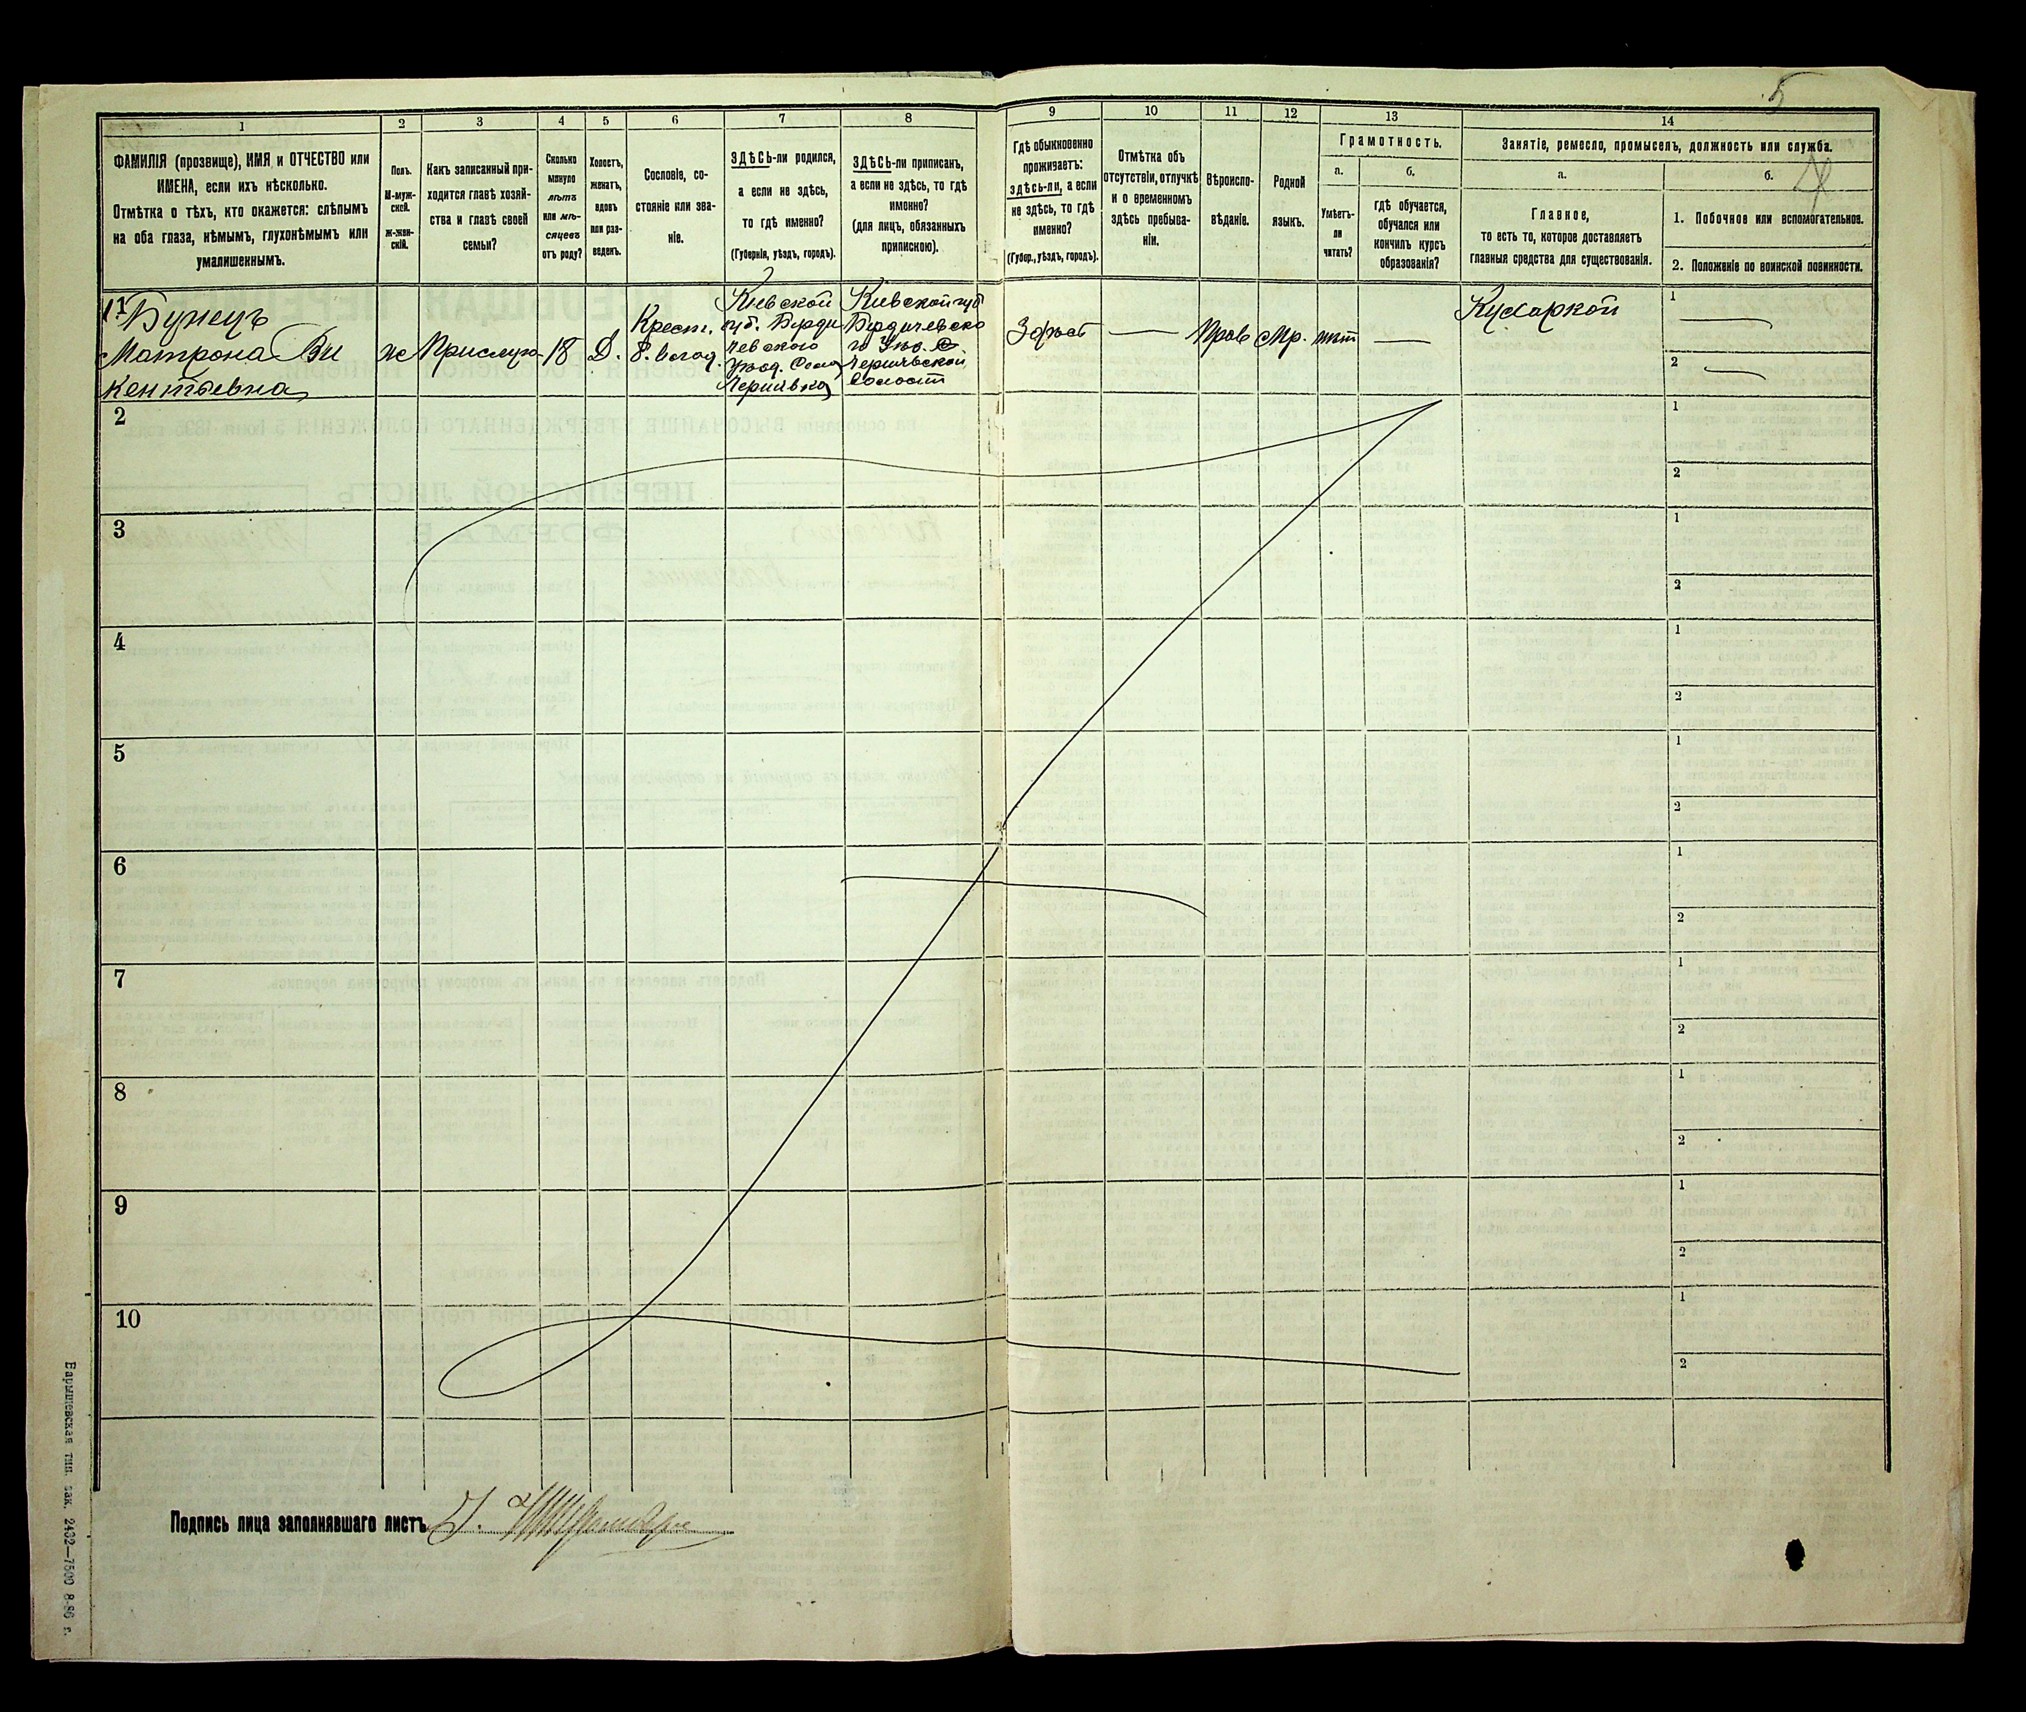 5
1
2
3
4
5
6
7
8
9
10
11
12
13
14
ФАМИЛІЯ (прозвище), ИМЯ и ОТЧЕСТВО или
ИМЕНА, если ихъ нѣсколько.
Отмѣтка о тѣхъ, кто окажется: слѣпымъ
на оба глаза, нѣмымъ, глухонѣмымъ или
умалишеннымъ.
Полъ.
М-муж-
ской.
Ж-жен-
скій.
Какъ записанный при-
ходится главѣ хозяй-
ства и главѣ своей
семьи?
Сколько
минуло
лѣтъ
или мѣ-
сяцевъ
отъ роду?
Холостъ,
женатъ,
вдовъ
или раз-
веденъ.
Сословіе, со-
стояніе или зва-
ніе.
ЗДѢСЬ-ли родился,
а если не здѣсь,
то гдѣ именно?
(Губернія, уѣздъ, городъ).
ЗДѢСЬ-ли приписанъ,
а если не здѣсь, то гдѣ
именно?
(для лицъ, обязанныхъ
припискою).
Гдѣ обыкновенно
проживаетъ:
здѣсь-ли, а если
не здѣсь, то гдѣ
именно?
(Губер., уѣздъ, городъ).
Отмѣтка объ
отсутствіи, отлучкѣ
и о временномъ
здѣсь пребыва-
ніи.
Вѣроиспо-
вѣданіе.
Родной
языкъ.
Грамотность.
а.
Умѣетъ-
ли
читать?
б.
гдѣ обучается,
обучался или
кончилъ курсъ
образованія?
Занятіе, ремесло, промыселъ, должность или служба.
а.
Главное,
то есть то, которое доставляетъ
главныя средства для существованія.
б.
1. Побочное или вспомогательное.
2. Положеніе по воинской повинности.
Бунецъ
Матрона Ви
кентьевна
ж
Прислуга
18
Д.
Крест.
Кіевской
губ. Берди
чевского
уѣзд.
Кіевской губ
Бердичевско
го Уѣз.
волости
Здѣсь
—
Прав
Мр.
нѣт
—
Кухаркой
1
2
2
1
2
3
1
2
4
1
2
5
1
2
6
1
2
7
1
2
8
1
2
9
1
2
10
1
2
Подпись лица заполнявшаго листъ
Барышевская тип. зак. 2432—7500 8-96 г.